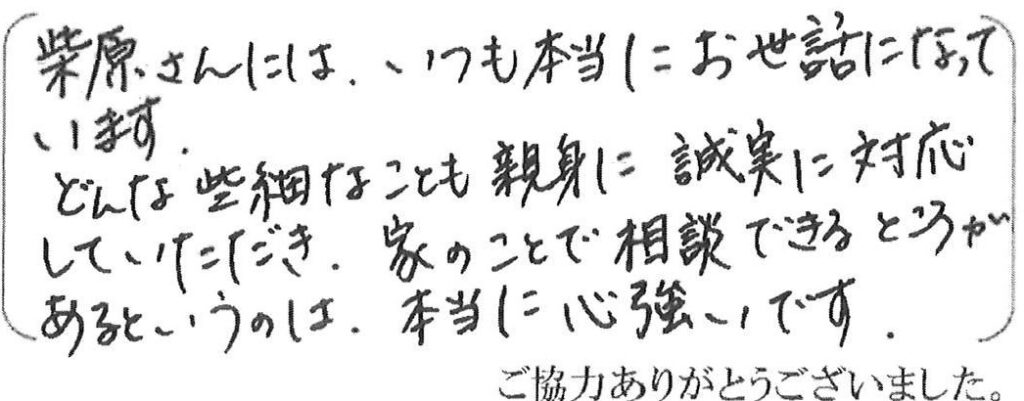 柴原さんには、いつも本当にお世話になって
います.
どんな些細なことも親身に誠実に対応
していただき、家のことで相談できるところが
あるというのは、本当に心強いです.
ご協力ありがとうございました。